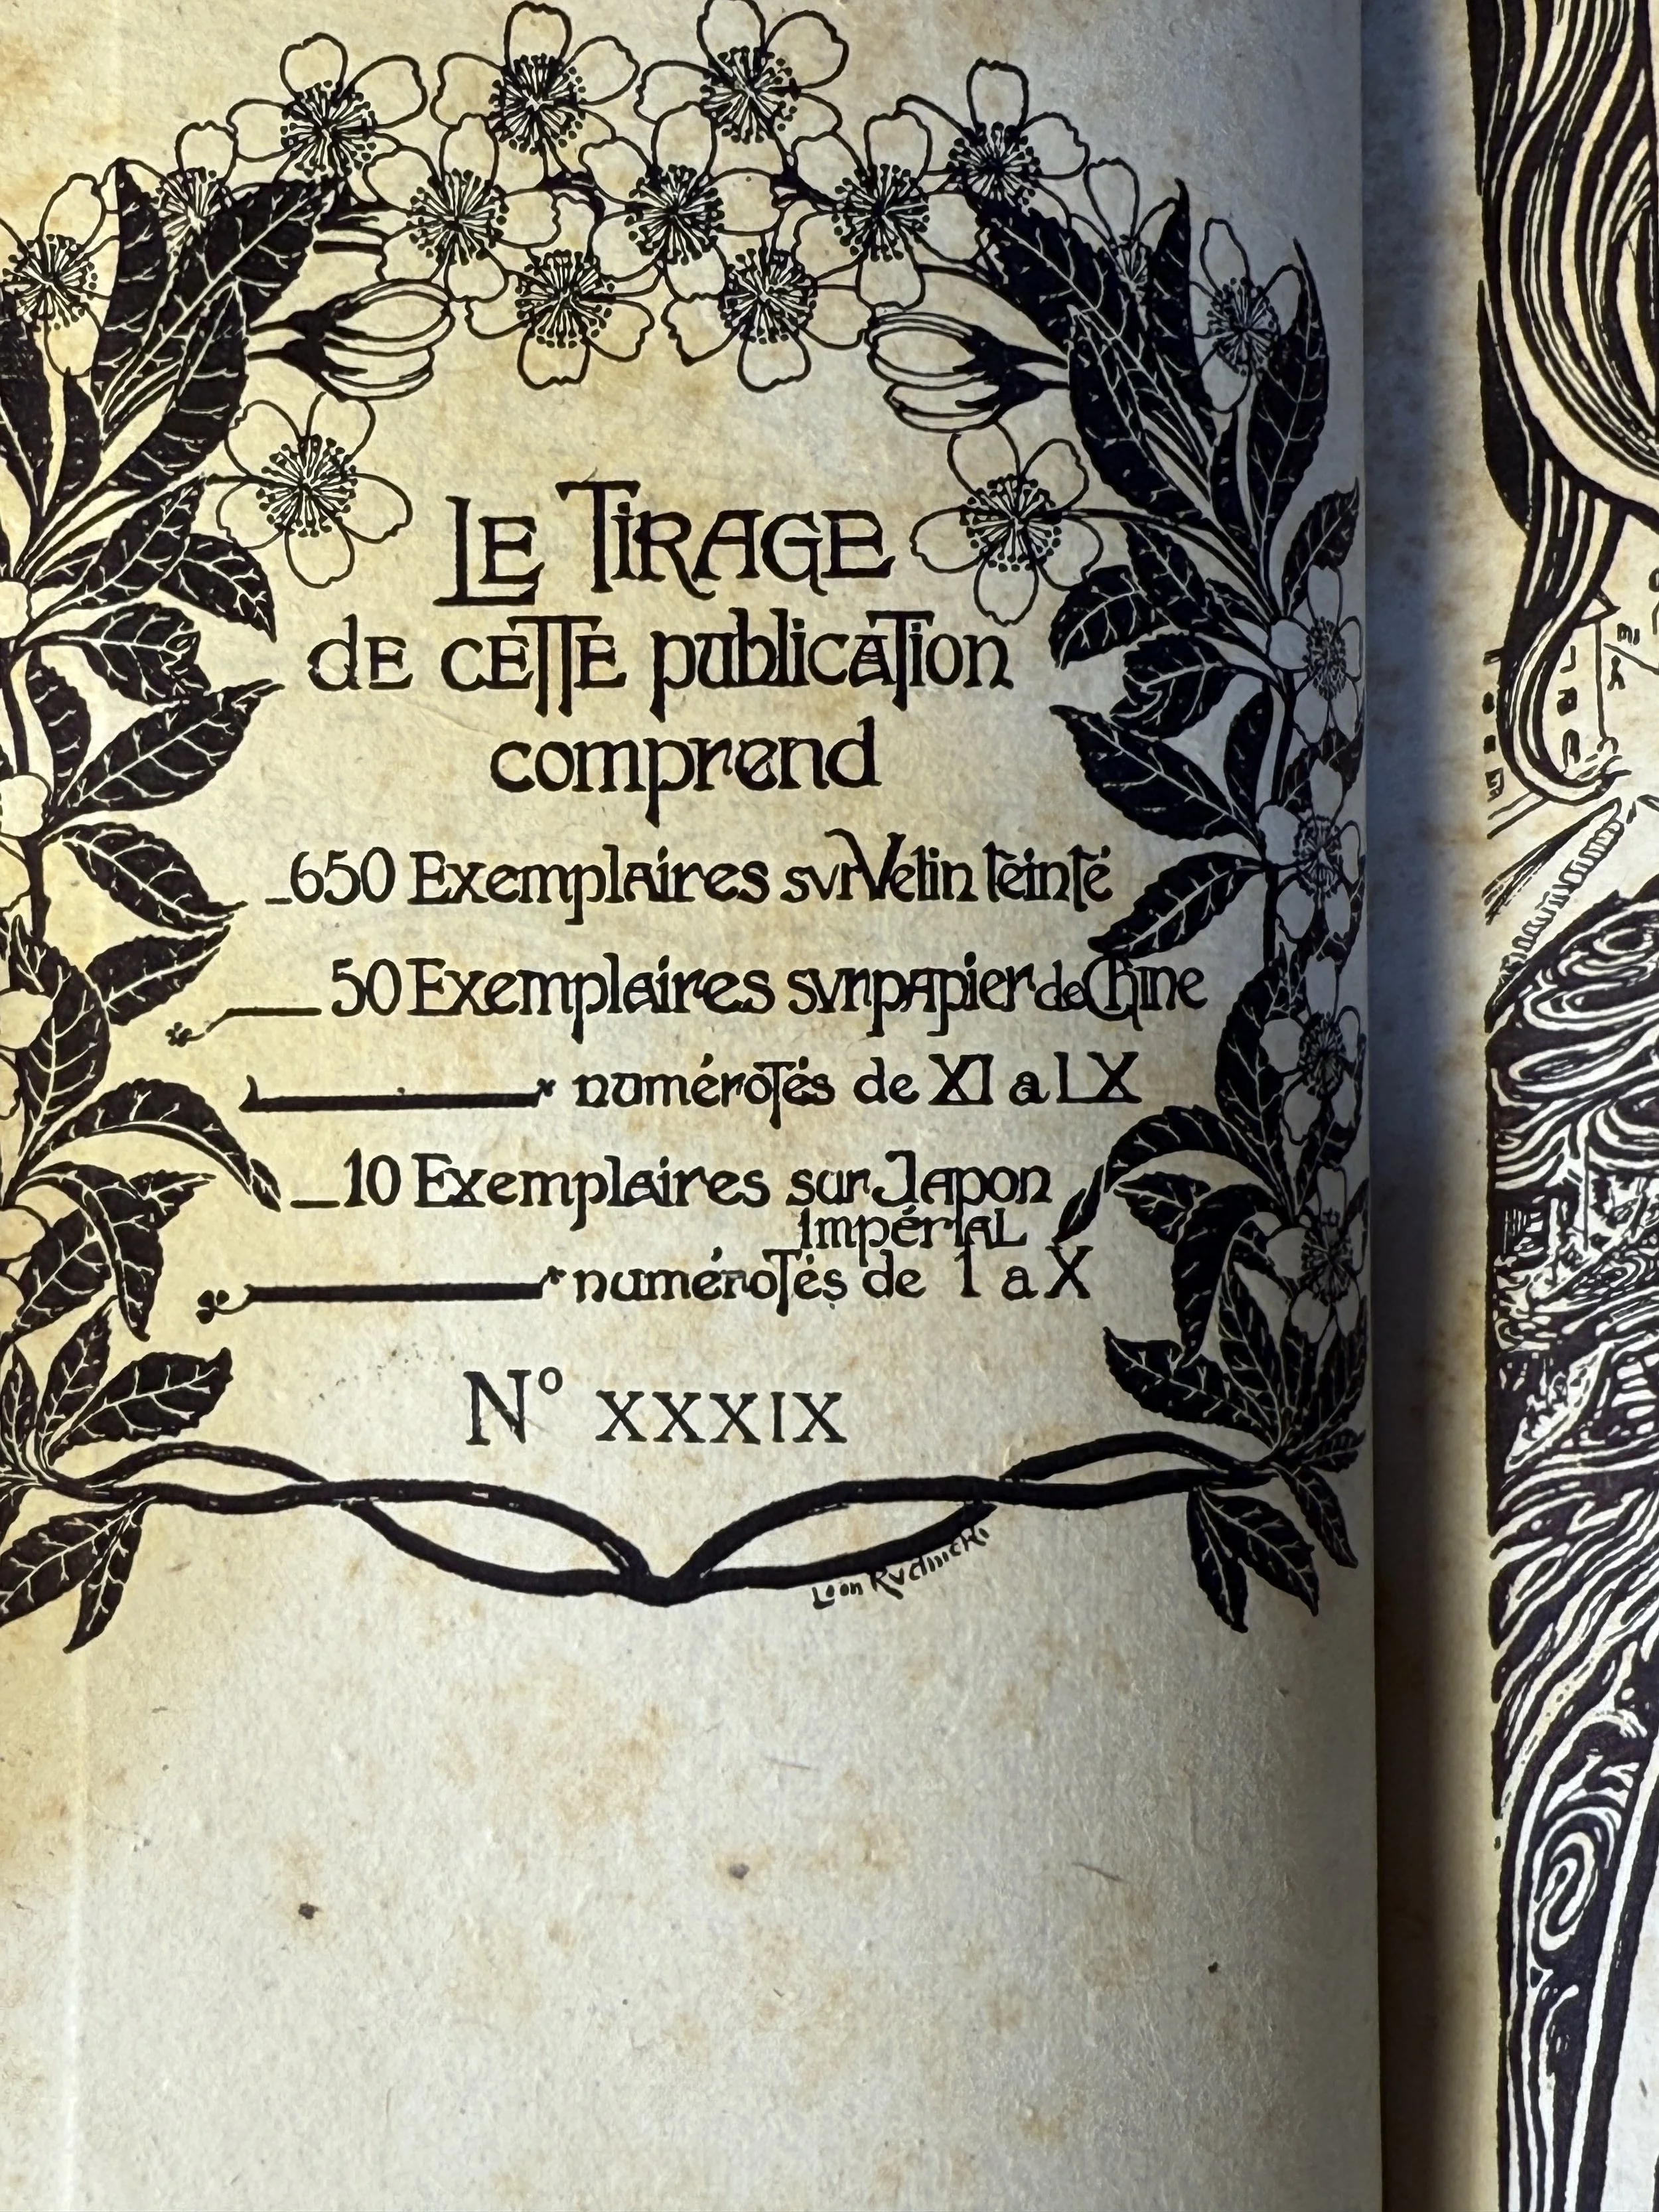 LE TIRAGE
de cette publication
comprend
650 Exemplaires sur Velin teinté
50 Exemplaires sur papier de Chine
numérotés de XI a LX
10 Exemplaires sur Japon
Impérial
numérotés de I a X
N° XXXIX
Léon Rudnicki